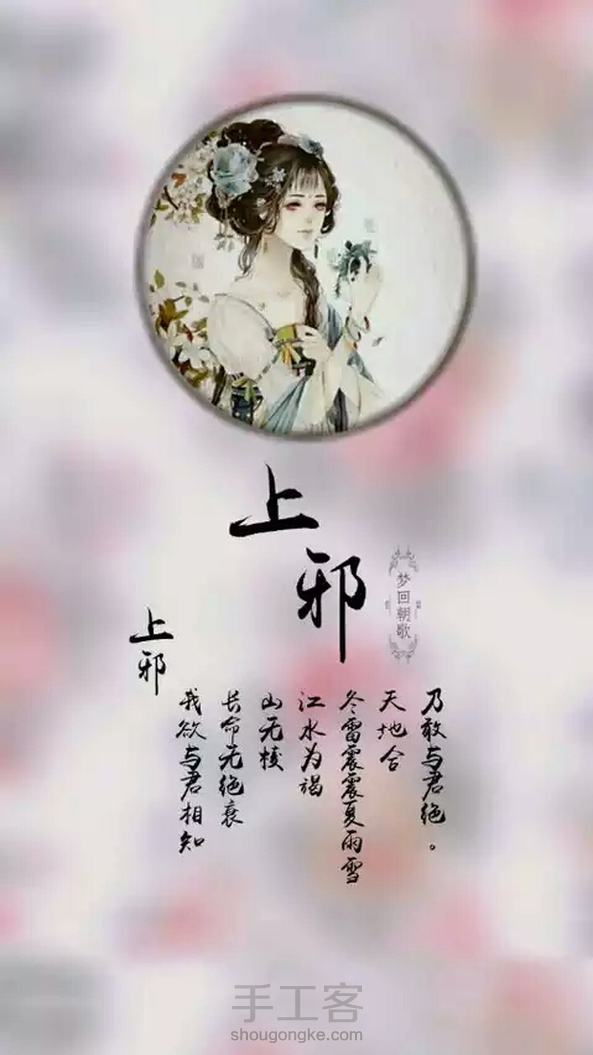 上
邪
梦回朝歌
上邪
我欲与君相知
长命无绝衰
山无棱
江水为竭
冬雷震震夏雨雪
天地合
乃敢与君绝。
手工客
shougongke.com